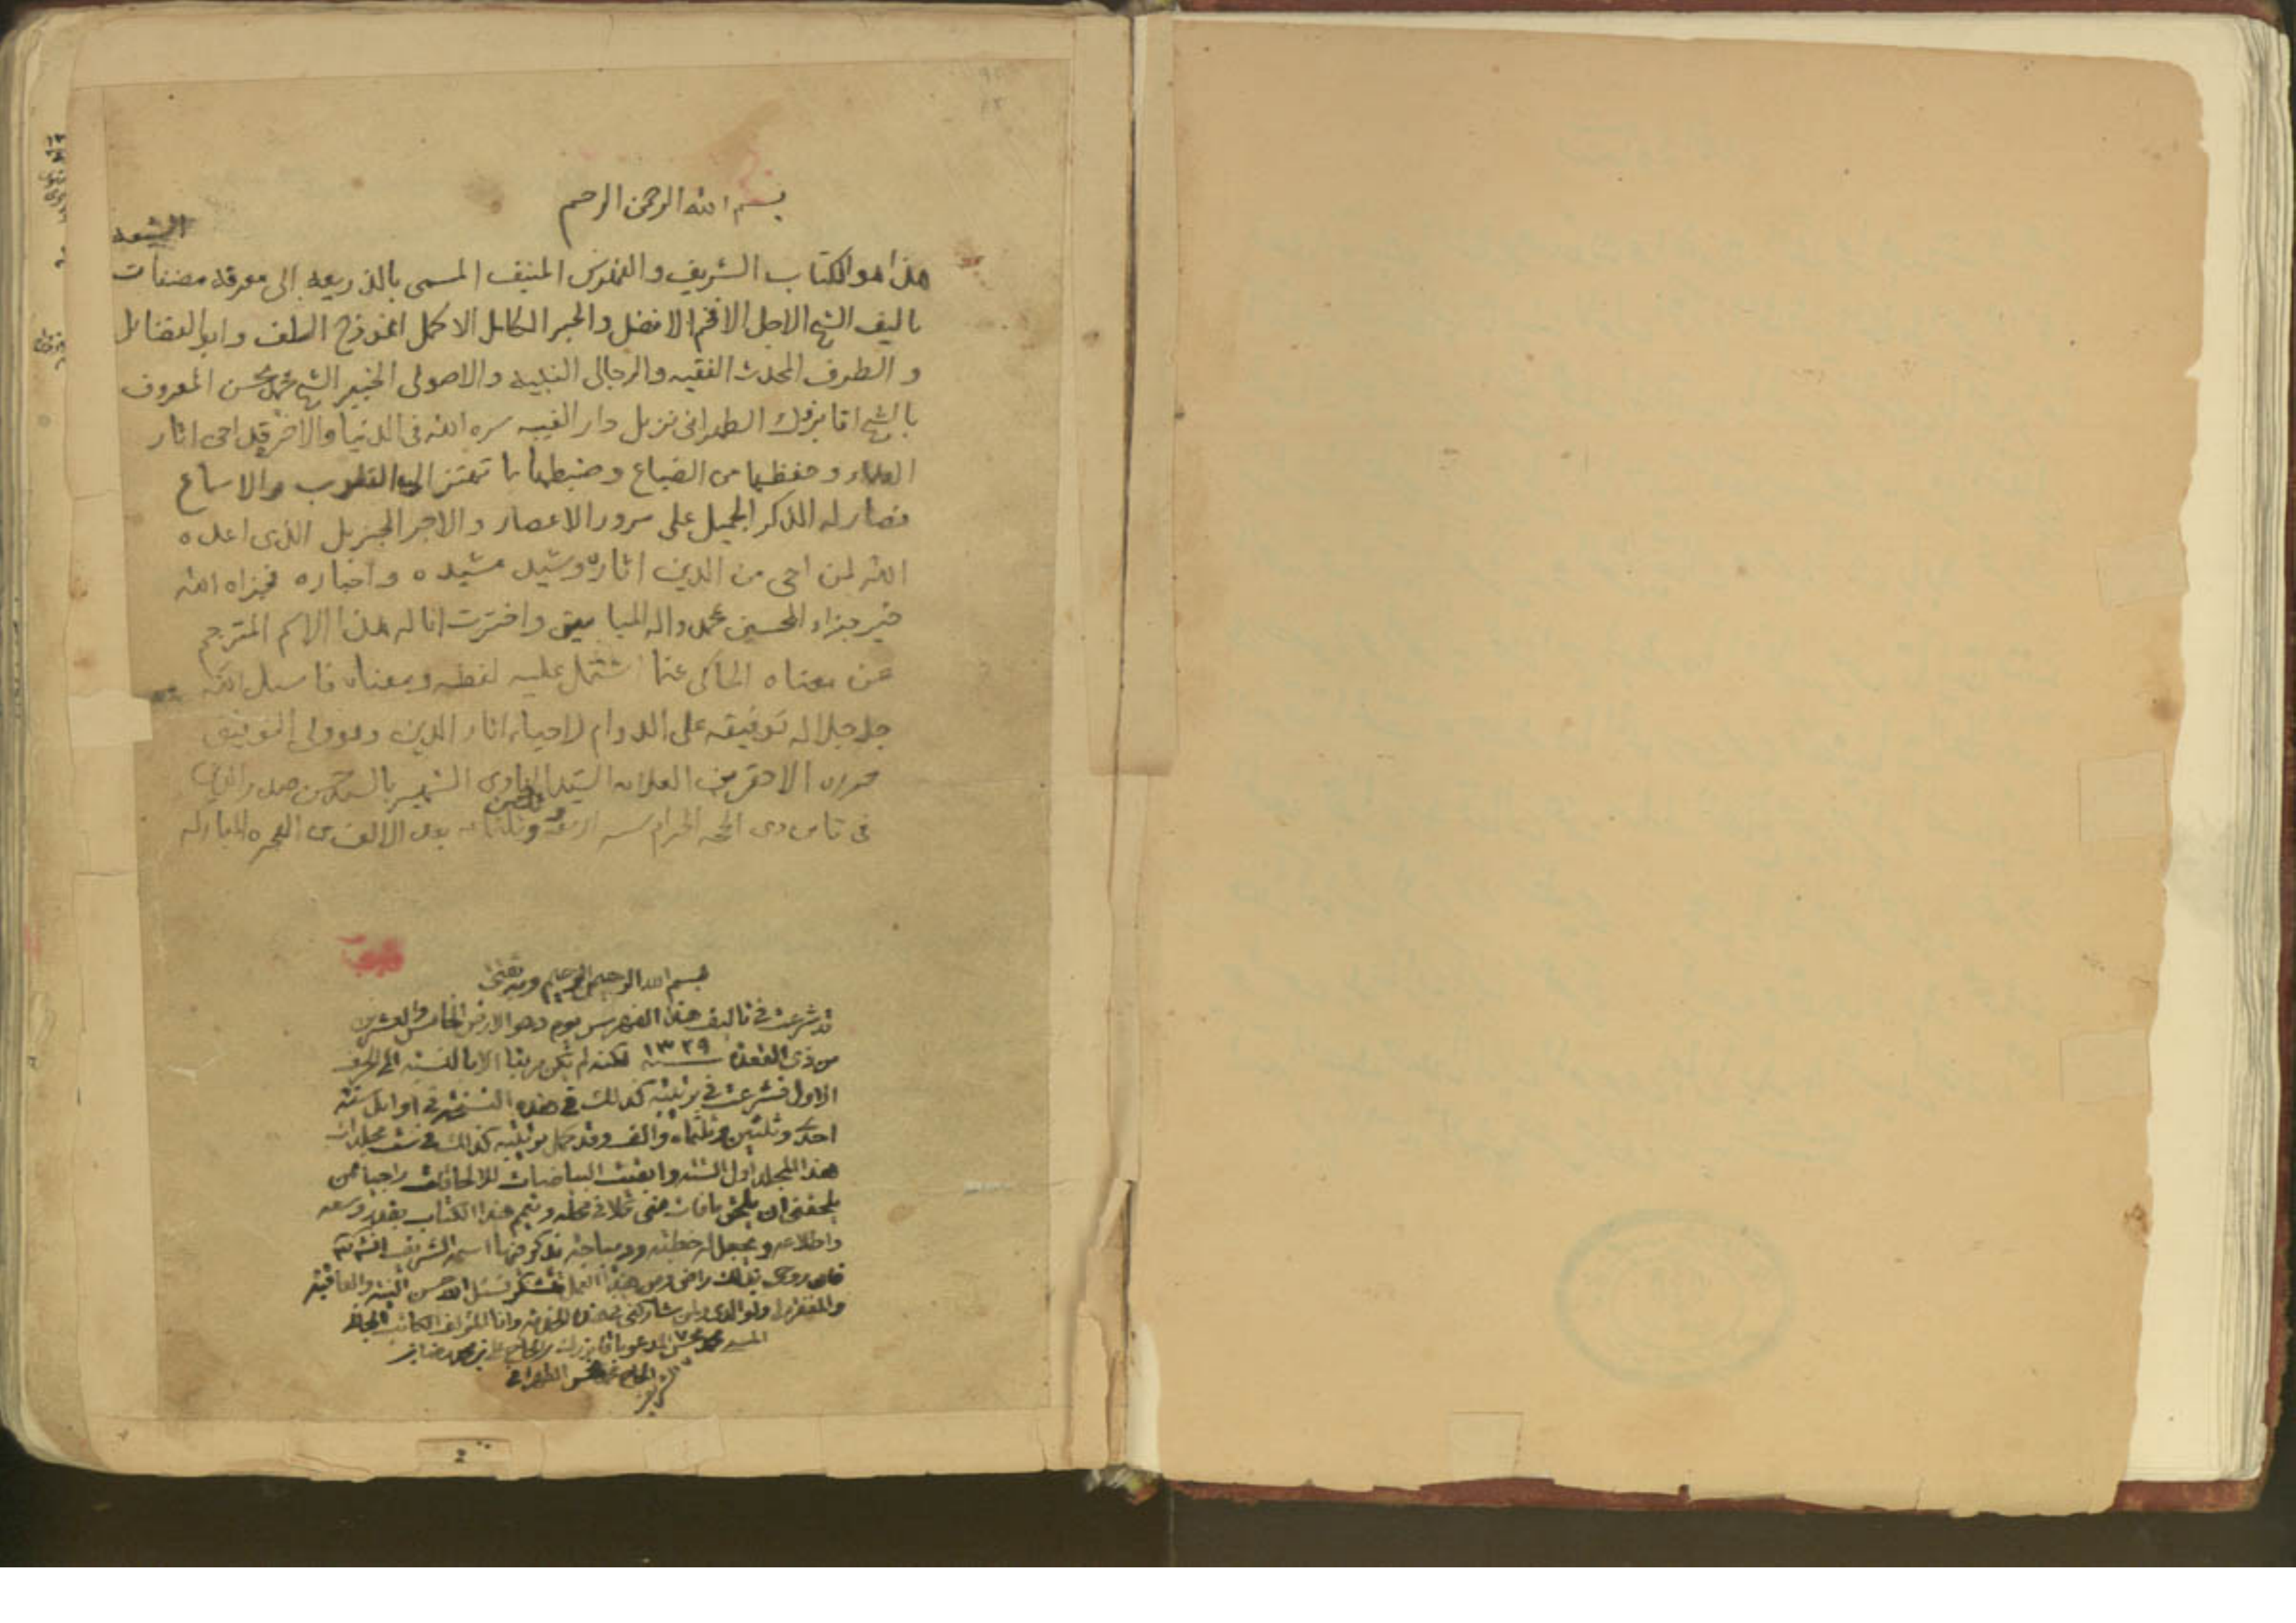 بسم الله الرحمن الرحيم
الشيعه
هذا هو الكتاب الشريف والفهرس المنيف المسمى بالذريعه الى معرفه مصنفات
تاليف الشيخ الاجل الافخم الافضل والحبر الكامل الاكمل انموذج السلف وابو الفضائل
و الطرف المحدث الفقيه والرجالى النبيه والاصولى الخبير الشيخ محمد محسن المعروف
بالشيخ اقا بزرك الطهرانى نزيل دار الغيبه سره الله فى الدنيا والاخره قد احى اثار
العلماء وحفظها من الضياع وضبطها بما تهتز اليه القلوب والاسماع
فصار له الذكر الجميل على مرور الاعصار والاجر الجزيل الذى اعده
الله لمن احى من الدين اثاره وشيد مشيده واخباره فجزاه الله
خير جزاء المحسنين بمحمد واله الميامين واخترت انا له هذا الاسم المترجم
عن معناه الحاكى عما اشتمل عليه لفظه ومعناه فاسئل الله
جل جلاله توفيقه على الدوام لاحياء اثار الدين وهو ولى التوفيق
حرره الاحقر ابن العلامه السيد الهادى الشهير بالسيد حسن صدر الدين
فى ثامن ذى الحجه الحرام سنه اربعه وثلثين وثلثمائه بعد الالف من الهجره المباركه
بسم الله الرحمن الرحيم وبه ثقتى
قد شرعت في تاليف هذا الفهرس يوم دحو الارض الخامس والعشرين
من ذى القعدة سنه ١٣٢٩ لكنه لم يكن مرتبا الا بالنسبه الى الحرف
الاول فشرعت في ترتيبه كذلك في هذه النسخه في اوايل سنه
احدى وثلثين وثلثماه والف وقد كمل ترتيبه كذلك في ست مجلدات
هذا المجلد اول الستة وابقيت البياضات للالحاقات راجيا ممن
يلحقنى ان يلحق ما فات منى كلا في محله ويتمم هذا الكتاب بقدر وسعه
واطلاعه ويجعل له خطبته وديباجته يذكر فيها اسمه الشريف
فان روحى بذلك راض ومن هذا العمل متشكر نسئل الله حسن النيه والعافيه
والمغفره لى ولوالدى ولمن شاركنى في هذه الخدمه وانا المؤلف الكاتب الجانى
المسيء محمد محسن المدعو باقا بزرك بن الحاج علي بن محمد رضا بن
الحاج محسن الطهرانى
2